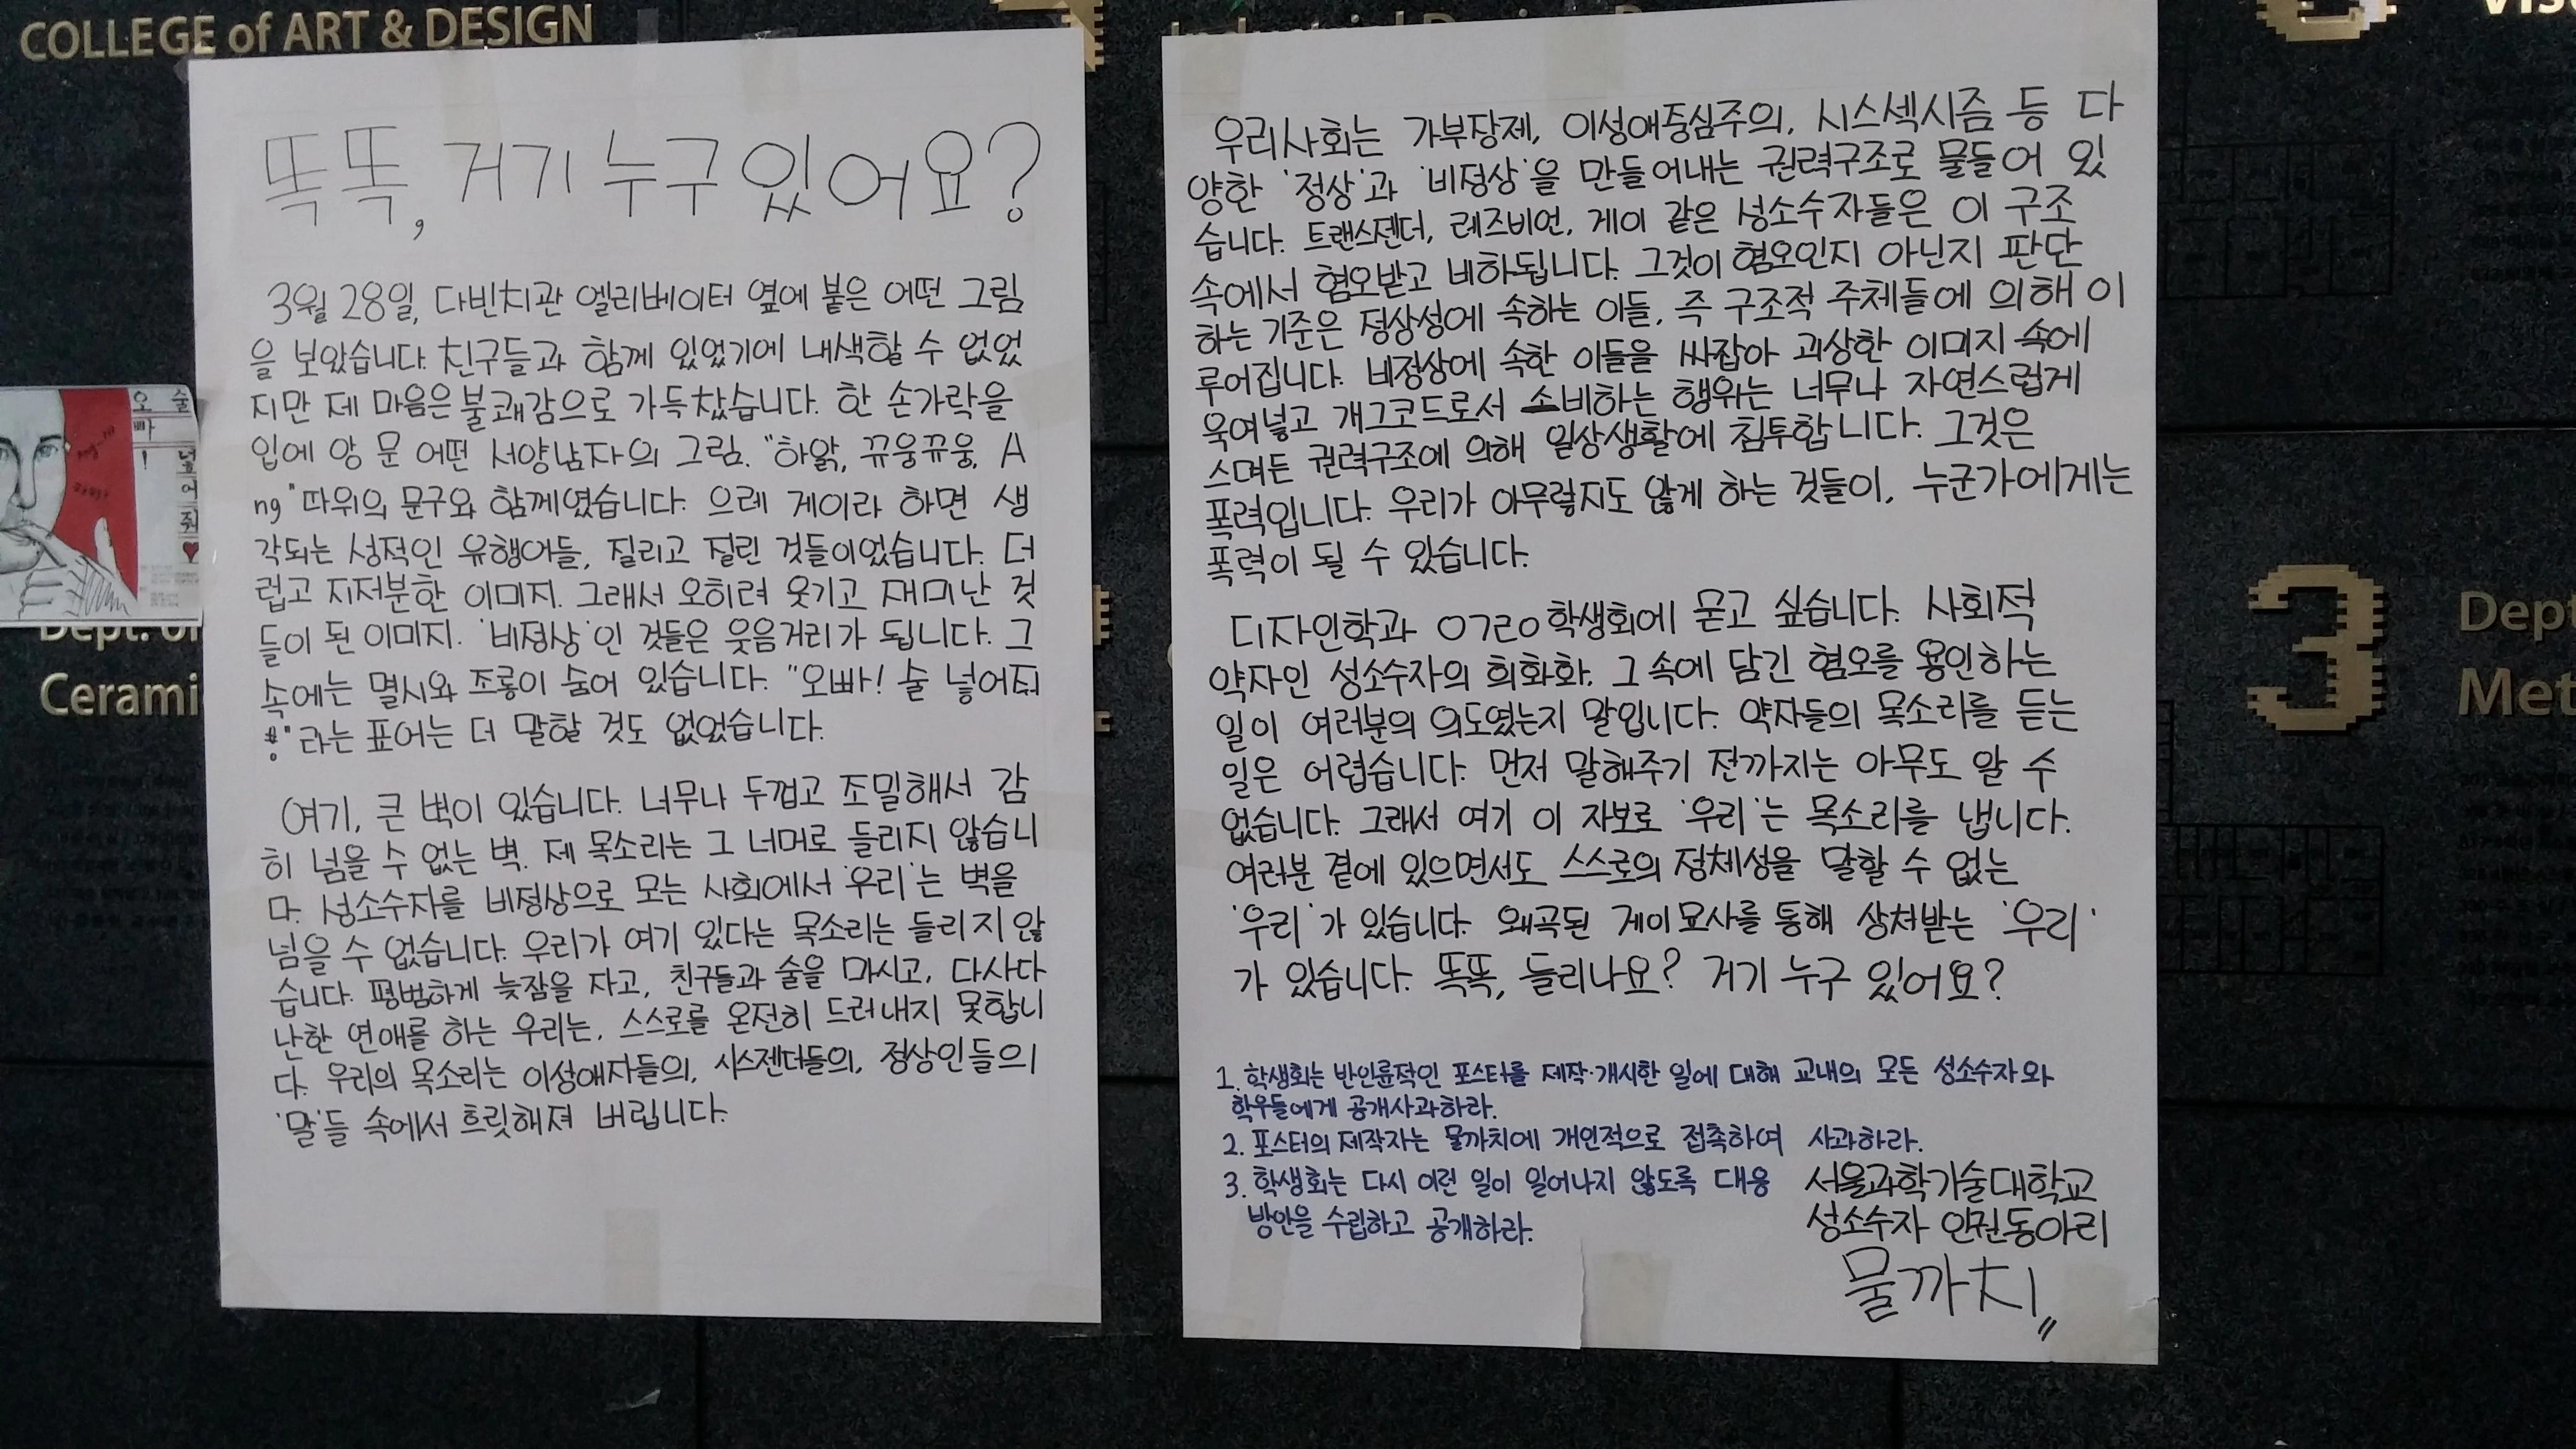 COLLEGE of ART & DESIGN
똑똑, 거기 누구 있어요?
3월 28일, 다빈치관 엘리베이터 옆에 붙은 어떤 그림
을 보았습니다. 친구들과 함께 있었기에 내색할 수 없었
지만 제 마음은 불쾌감으로 가득찼습니다. 한 손가락을
입에 앙 문 어떤 서양남자의 그림. "하앍, 뀨웅뀨웅, A
ng" 따위의 문구와 함께였습니다. 으레 게이라 하면 생
각되는 성적인 유행어들, 질리고 질린 것들이었습니다. 더
럽고 지저분한 이미지. 그래서 오히려 웃기고 재미난 것
들이 된 이미지. '비정상'인 것들은 웃음거리가 됩니다. 그
속에는 멸시와 조롱이 숨어 있습니다. "오빠! 술 넣어줘
"라는 표어는 더 말할 것도 없었습니다.
여기, 큰 벽이 있습니다. 너무나 두껍고 조밀해서 감
히 넘을 수 없는 벽. 제 목소리는 그 너머로 들리지 않습니
다. 성소수자를 비정상으로 모는 사회에서 '우리'는 벽을
넘을 수 없습니다. 우리가 여기 있다는 목소리는 들리지 않
습니다. 평범하게 늦잠을 자고, 친구들과 술을 마시고, 다사다
난한 연애를 하는 우리는, 스스로를 온전히 드러내지 못합니
다. 우리의 목소리는 이성애자들의, 시스젠더들의, 정상인들의
'말'들 속에서 흐릿해져 버립니다.
우리사회는 가부장제, 이성애중심주의, 시스섹시즘 등 다
양한 '정상'과 '비정상'을 만들어내는 권력구조로 물들어 있
습니다. 트랜스젠더, 레즈비언, 게이 같은 성소수자들은 이 구조
속에서 혐오받고 비하됩니다. 그것이 혐오인지 아닌지 판단
하는 기준은 정상성에 속하는 이들, 즉 구조적 주체들에 의해 이
루어집니다. 비정상에 속한 이들을 싸잡아 괴상한 이미지 속에
욱여넣고 개그코드로서 소비하는 행위는 너무나 자연스럽게
스며든 권력구조에 의해 일상생활에 침투합니다. 그것은
폭력입니다. 우리가 아무렇지도 않게 하는 것들이, 누군가에게는
폭력이 될 수 있습니다.
디자인학과 학생회에 묻고 싶습니다. 사회적
약자인 성소수자의 희화화, 그 속에 담긴 혐오를 용인하는
일이 여러분의 의도였는지 말입니다. 약자들의 목소리를 듣는
일은 어렵습니다. 먼저 말해주기 전까지는 아무도 알 수
없습니다. 그래서 여기 이 자보로 '우리'는 목소리를 냅니다.
여러분 곁에 있으면서도 스스로의 정체성을 말할 수 없는
'우리'가 있습니다. 왜곡된 게이묘사를 통해 상처받는 '우리'
가 있습니다. 똑똑, 들리나요? 거기 누구 있어요?
1. 학생회는 반인륜적인 포스터를 제작·개시한 일에 대해 교내의 모든 성소수자와
학우들에게 공개사과하라.
2. 포스터의 제작자는 물까치에 개인적으로 접촉하여 사과하라.
3. 학생회는 다시 이런 일이 일어나지 않도록 대응
방안을 수립하고 공개하라.
서울과학기술대학교
성소수자 인권동아리
물까치
오빠!
술 넣어줘♥
Dept. of
Cerami
3
Dept
Met